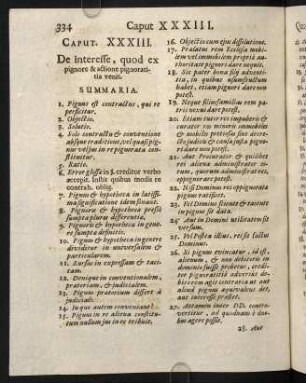 334 Caput XXXIII.
CAPUT. XXXIII.
De interesse, quod ex
pignore & actione pignorati-
tia venit.
SUMMARIA.
1. Pignus est contractus, qui re
perficitur.
2. Objectio.
3. Solutio.
4. Solo contractu & conventione
absque traditione, vel quasi pig-
nus
5. Ratio.
6. Error glossæ in §. creditor verbo
accepit. Instit. quibus modis re
contrah. oblig.
7. Pignus & hypotheca in latissi-
ma significatione idem sonant.
8. Pignoris & hypothecæ pressè
sumpta plures differentiæ.
9. Pignoris & hypothecæ in gene-
re sumpta definitio.
10. Pignus & hypotheca in genere
dividitur in universalem &
particularem.
11. Rursus in expressam & taci-
tam.
12. Denique in conventionalem,
prætoriam, & judicialem.
13. Pignus prætorium differt à
judiciali.
14. In quo autem conveniant?
15. Pignus in re aliena constitu-
tum nullum jus in ea tribuit.
16. Objectio cum ejus dissolutione.
17. Prælatus rem Ecclesiæ mobi-
lem vel immobilem propriâ au-
thoritate pignori dare nequit.
18. Sic pater bona filij adventi-
tia, in quibus usumfructum
habet, etiam pignori dare non
potest.
19. Neque filiusfamilias rem pa-
tris nexui dare potest.
20. Etiam tutor res impuberis &
curator res minoris immobiles
& mobiles pretiosas sine decre-
to judicis & causa justa pignori
dare non potest.
21. Aut Procurator & quilibet
rei alienæ administrator ali-
orum, quorum administrat res,
oppignorare potest.
22. Nisi Dominus rei oppignoratæ
pignus ratificet.
23. Vel Domino sciente & tacente
in pignus sit data.
24. Aut in Domini utilitatem sit
versum.
25. Vel postea illius, rei sit factus
Dominus.
26. Si pignus evincatur, id est,
alienum, & non debitoris in
dominio fuisse probetur, credi-
tor pigneratitiâ adversus de-
bitorem agit contraria ut aut
aliud pignus æquivalens det,
aut interesse præstet.
27. Attamen inter DD. contro-
vertitur, ad quodnam è duo-
bus agere possit.
28. Aut